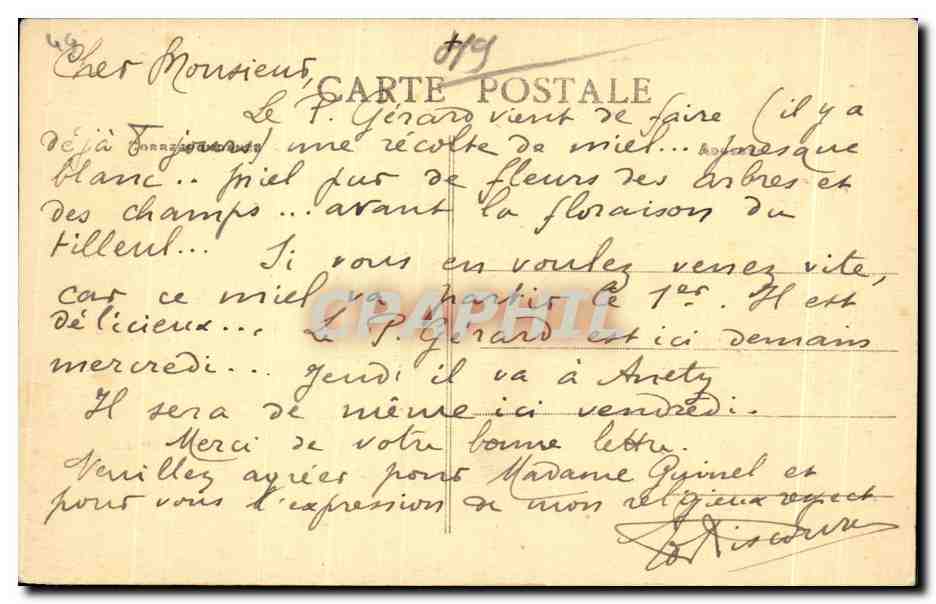 44
Cher Monsieur,
CARTE POSTALE
Le P. Gérard vient de faire (il y a
déjà jours) une récolte de miel... presque
blanc.. miel pur de fleurs des arbres et
des champs... avant la floraison du
tilleul...
Si vous en voulez venez vite,
car ce miel va partir le 1er. Il est
délicieux... Le P. Gérard est ici demain
mercredi... Jeudi il va à
Il sera de même ici vendredi.
Merci de votre bonne lettre.
Veuillez agréer pour Madame et
pour vous l'expression de mon religieux respect
CPAPHIL